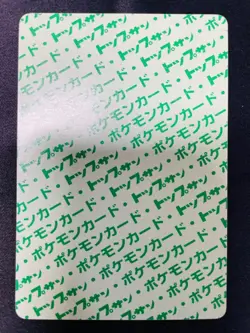 トップサン
ポケモンカード・トップサン
トップサン・ポケモンカード
ポケモンカード・トップサン
トップサン・ポケモンカード
ポケモンカード・トップサン
トップサン・ポケモンカード
ポケモンカード・トップサン
トップサン・ポケモンカード
ポケモンカード・トップサン
ポケモンカード